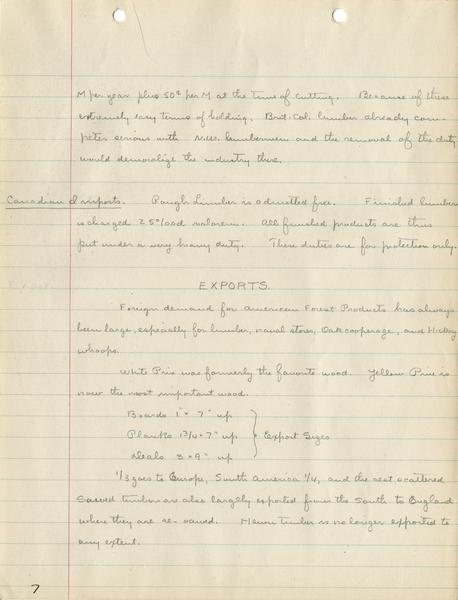 M per year plus 50¢ per M at the time of cutting. Because of these
extremely easy terms of holding, Brit. Col. lumber already com-
petes serious with N.W. lumbermen and the removal of the duty
would demoralize the industry there.
Canadian Imports. Rough Lumber is admitted free. Finished lumber
is charged 25% ad valorem. All finished products are thus
put under a very heavy duty. These duties are for protection only.
EXPORTS.
Foreign demand for American Forest Products has always
been large, especially for lumber, naval stores, Oak cooperage, and Hickory
whoops.
White Pine was formerly the favorite wood. Yellow Pine is
now the most important wood.
Boards 1" × 7" up
Planks 1 3/4 × 7" up } Export Sizes
Deals 3 × 9" up
1/3 goes to Europe, South America 1/4, and the rest scattered
Sawed timbers are also largely exported from the South to England
where they are re-sawed. Hewn timber is no longer exported to
any extent.
7